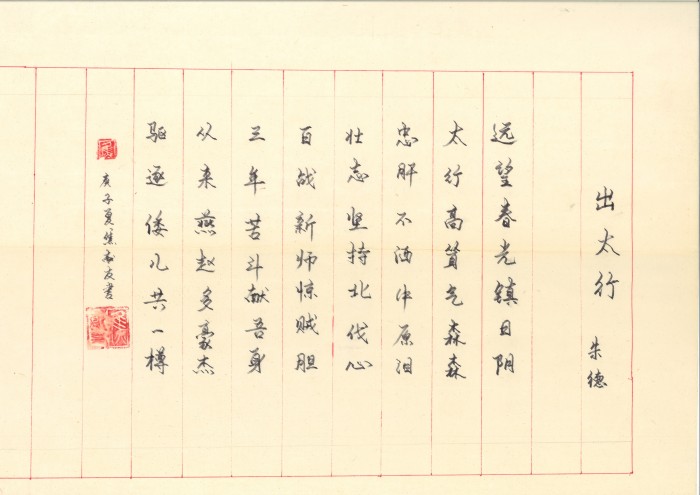 出太行
朱德
远望春光镇日阴
太行高耸气森森
忠肝不洒中原泪
壮志坚持北伐心
百战新师惊贼胆
三年苦斗献吾身
从来燕赵多豪杰
驱逐倭儿共一樽
庚子夏 友书